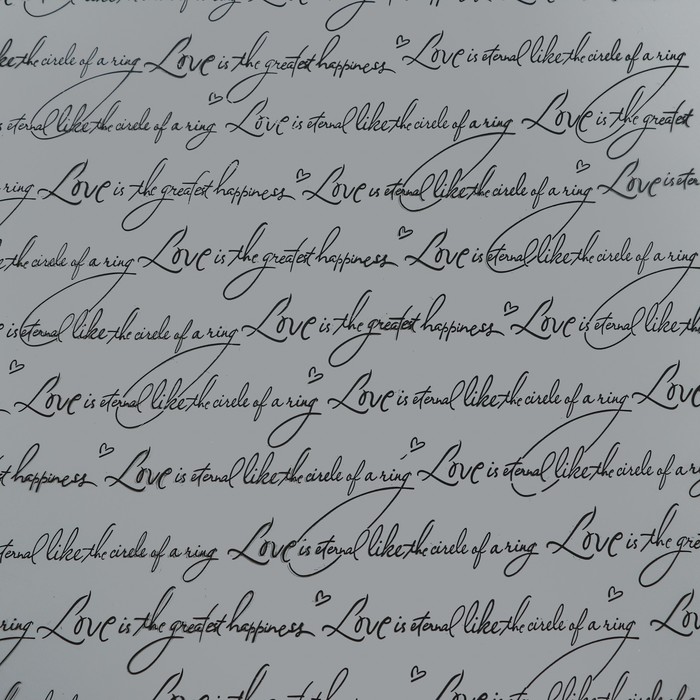 the circle of a ring Love is the greatest happiness Love is eternal like the circle of a ring
eternal like the circle of a ring Love is eternal like the circle of a ring Love is the greatest
ring Love is the greatest happiness Love is eternal like the circle of a ring Love is eter
the circle of a ring Love is the greatest happiness Love is eternal like the circle of a ring
is eternal like the circle of a ring Love is the greatest happiness Love is eternal like th
Love is eternal like the circle of a ring Love is eternal like the circle of a ring Love
t happiness Love is eternal like the circle of a ring Love is eternal like the circle of a r
ternal like the circle of a ring Love is eternal like the circle of a ring Love is the gre
ring Love is the greatest happiness Love is eternal like the circle of a ring Lo